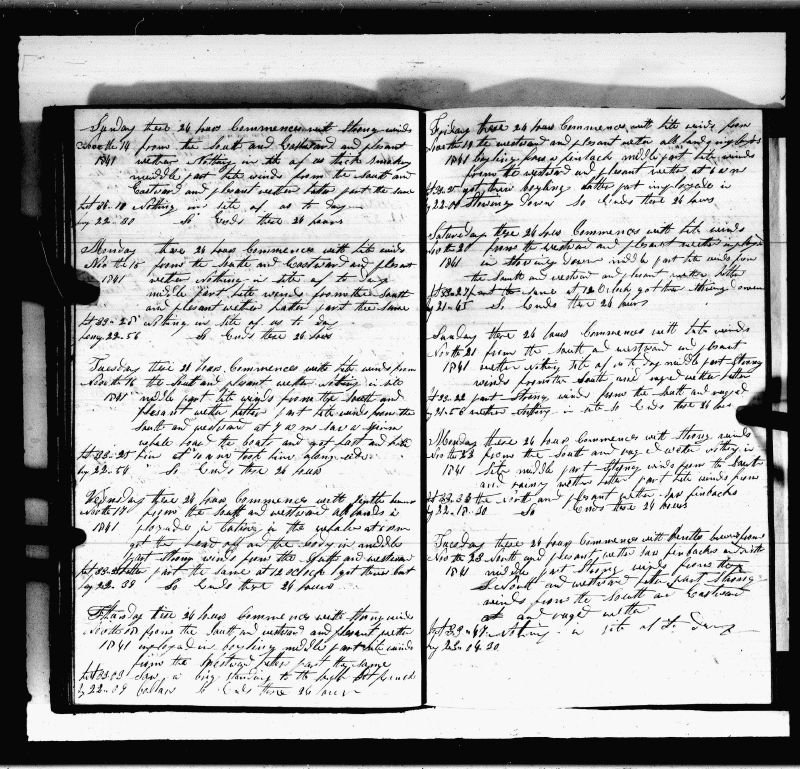 Sunday these 24 hours Commences with Strong winds
North 14 from the South and Eastward and plesant
1841 wether Nothing in site of us thick smokey
middle part lite winds from the South and
Eastward and plesant wether latter part the same
Nothing in site of us to day
lg 22-30 So Ends these 24 hours
Monday these 24 hours Commences with lite winds
Nov the 15 from the South and Eastward and plesant
1841 wether Nothing in site of us to day
middle part lite winds from the South
and plesant wether latter part the same
lat 33-25 nothing in site of us to day
long 22-56 So Ends these 24 hours
Tuesday these 24 hours Commences with lite winds from
Nov th 16 the South and plesant wether nothing in site
1841 middle part lite winds from the South and
plesant wether latter part lite winds from the
South and westward at 7 a m saw a Sperm
whale lowd the boats and got fast and kild
lat 33-25 him at 10 a m took him along side
lg 22-54 So Ends these 24 hours
Wensday these 24 hours Commences with
Nov th 17 from the South and westward all hands
1841 in Cuting in the whale at
got the head off and the body in middle
part strong winds from the South and westward
latter part the same at 12 oclock got three
lg 22-38 So Ends these 24 hours
Thursday these 24 hours Commences with Strong winds
from the South and westward and plesant wether
1841 imployed in boyling middle part lite winds
from the Westward latter part the same
Saw a brig standing to the
lg 22-09 So Ends these 24 hours
Friday these 24 hours Commences with lite winds from
Nov th 19 the westward and plesant wether all hands
1841 boyling saw a finback middle part lite winds
from the westward and plesant wether at 6 a m
got threw boyling latter part imployed in
lg 22-04 Stowing Down So Ends these 24 hours
Saturday these 24 hours Commences with lite winds
Nov th 20 from the westward and plesant wether imployed
1841 in Stowing down middle part lite winds from
the South and westward and plesant wether latter
part the same at 12 Oclock got threw Stowing down
lg 21-45 So Ends these 24 hours
Sunday these 24 hours Commences with lite winds
Nov th 21 from the South and westward and plesant
1841 wether nothing site of us to day middle part Strong
winds from the South and ruged wether latter
lat 33-22 part Strong winds from the South and ruged
lg 21-58 wether Nothing in site So Ends these 24 hours
Monday these 24 hours Commences with Strong winds
Nov th 22 from the South and ruged wether nothing in
1841 Site middle part Strong winds from the South
and rainy wether latter part lite winds from
the North and plesant wether saw finbacks
lg 22-18-30 So Ends these 24 hours
Tuesday these 24 hours Commences with Gentle breeses from
Nov th 23 South and plesant wether saw finbacks
1841 middle part Strong winds from the
South and westward latter part Strong
winds from the South and Eastward
and ruged wether
lat 33-47 Nothing in site of us to day
lg 23-04-30